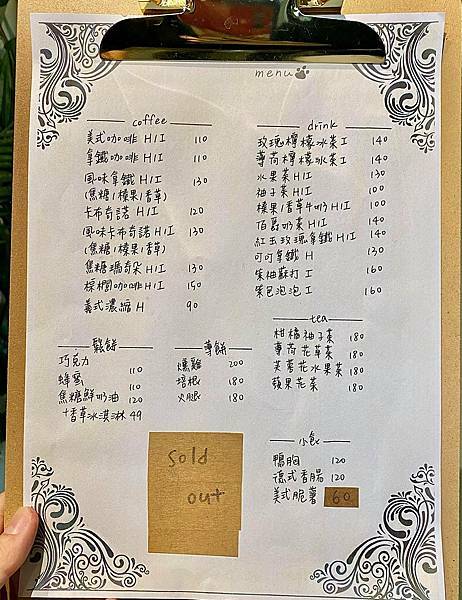 menu
coffee
美式咖啡 H/I 110
拿鐵咖啡 H/I 110
風味拿鐵 H/I 130
(焦糖/榛果/香草)
卡布奇諾 H/I 120
風味卡布奇諾 H/I 130
(焦糖/榛果/香草)
焦糖瑪奇朵 H/I 130
棕櫚咖啡 H/I 150
義式濃縮 H 90
drink
玫瑰檸檬冰茶 I 140
薄荷檸檬冰茶 I 140
水果茶 H/I 130
柚子茶 H/I 100
榛果/香草牛奶 H/I 100
伯爵奶茶 H/I 140
紅玉玫瑰拿鐵 H/I 140
可可拿鐵 H 130
柚蘇打 I 160
泡泡 I 160
tea
柑橘柚子茶 180
薄荷花草茶 180
芙蓉花水果茶 180
蘋果花茶 180
鬆餅
巧克力 110
蜂蜜 110
焦糖鮮奶油 120
+香草冰淇淋 49
薄餅
燻雞 200
培根 180
火腿 180
小食
鴨胸 120
德式香腸 120
美式脆薯 60
sold
out